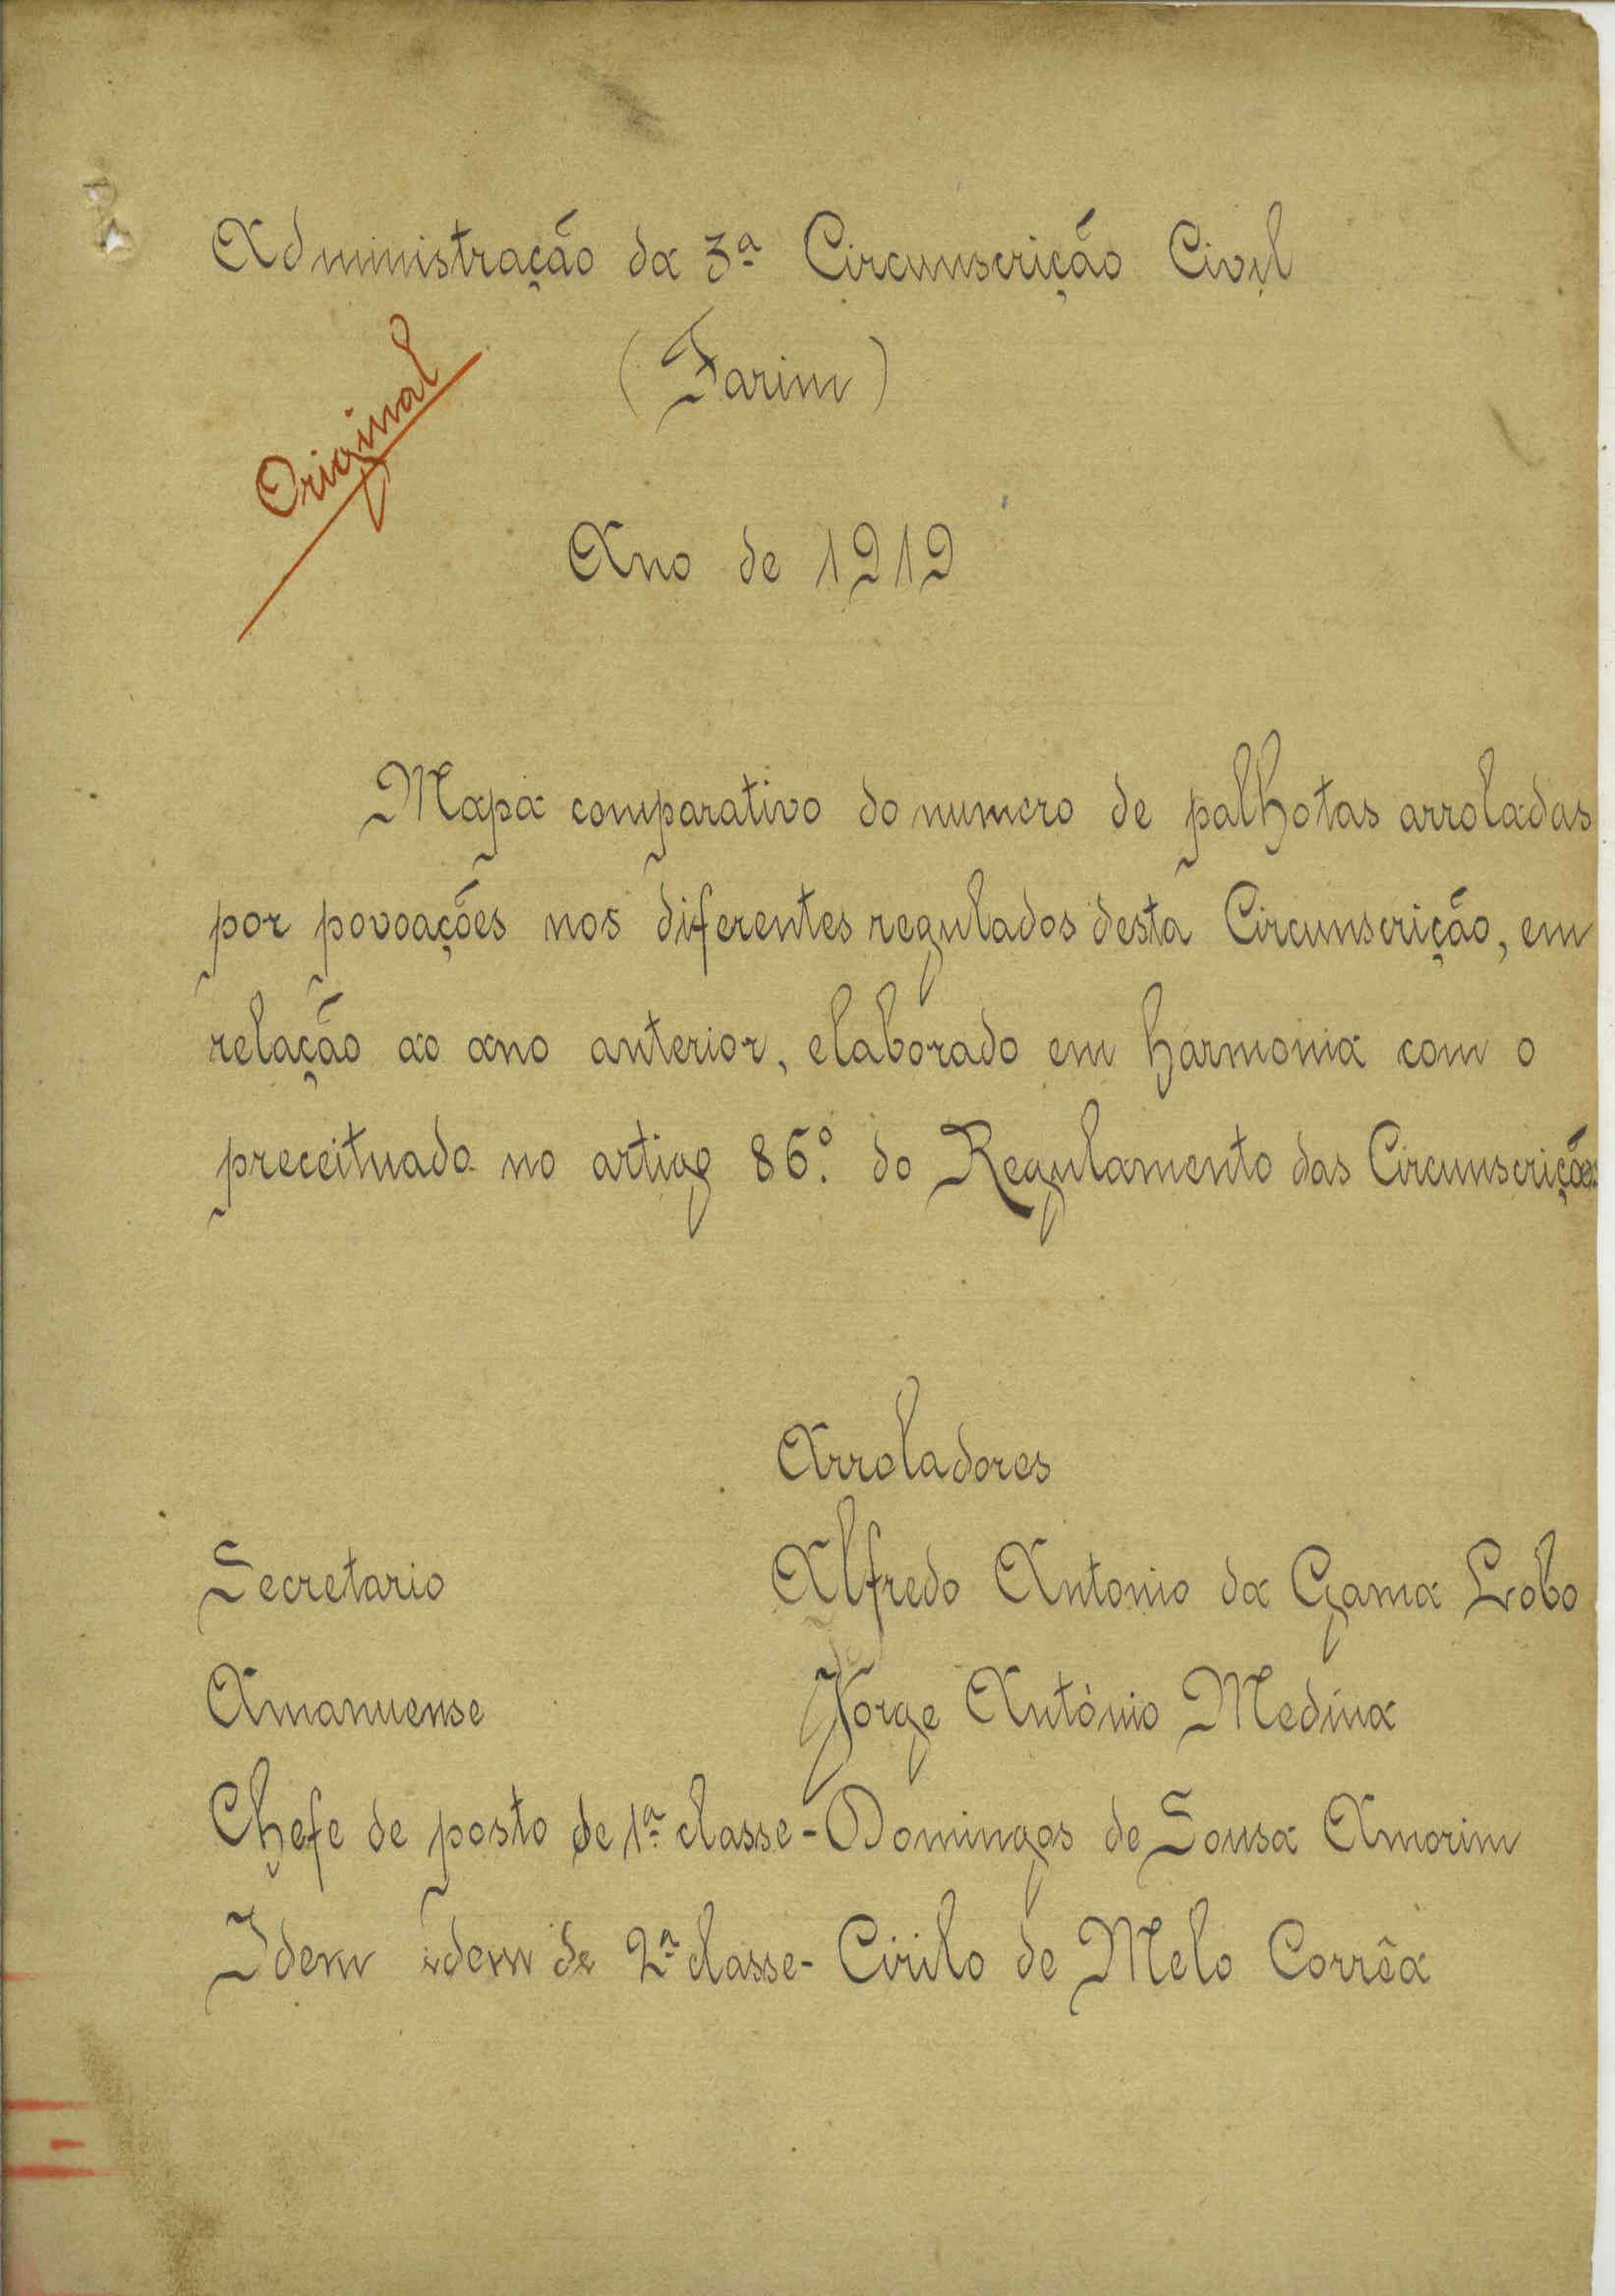 Administração da 3ª Circunscrição Civil
(Farim)
Original
Ano de 1919
Mapa comparativo do numero de palhotas arroladas
por povoações nos diferentes regulados desta Circunscrição, em
relação ao ano anterior, elaborado em harmonia com o
preceituado no artigo 86.º do Regulamento das Circunscrições
Arroladores
Secretario Alfredo Antonio da Gama Lobo
Amanuense Jorge António Medina
Chefe de posto de 1ª classe - Domingos de Sousa Amorim
Idem idem de 2ª classe - Cirilo de Melo Corrêa